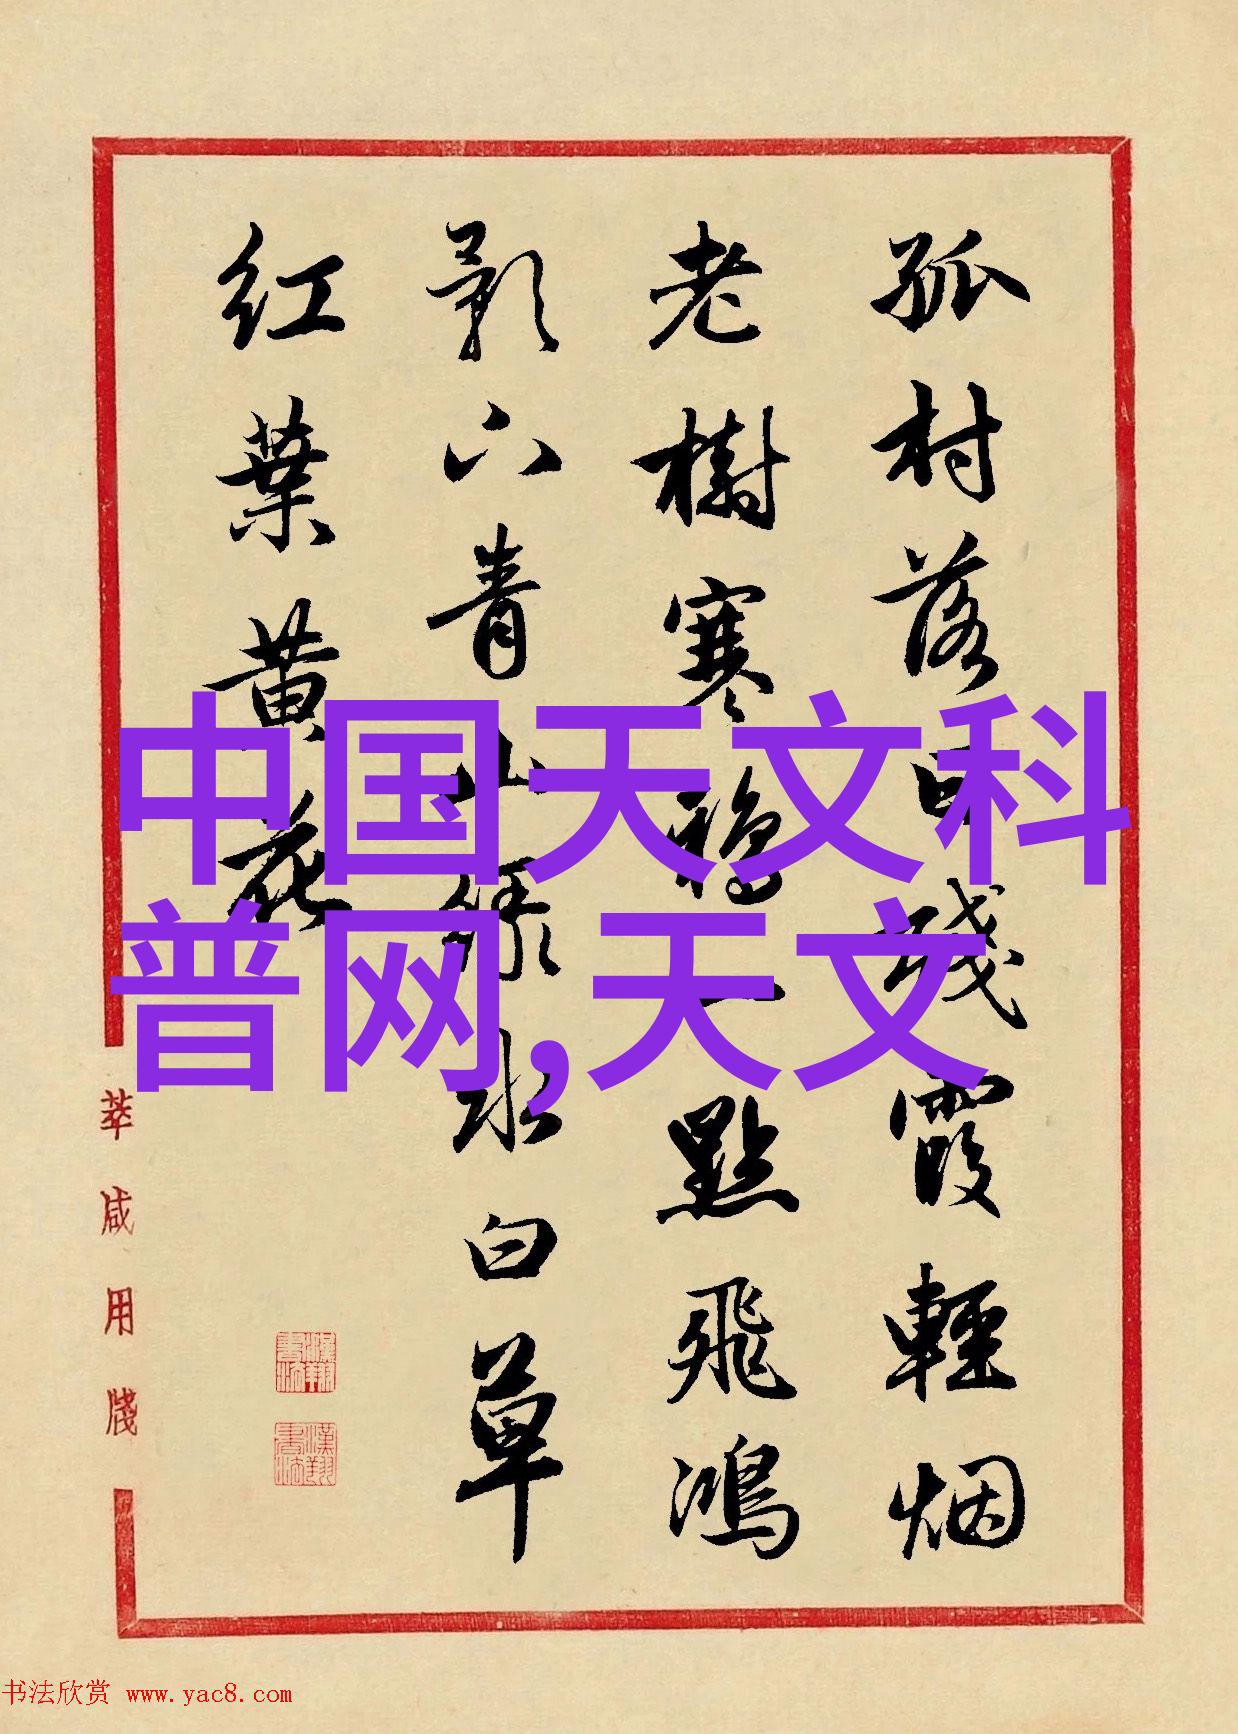 孤村落日残霞輕烟
老樹寒鴉一點飛鴻
影下青山綠水白草
紅葉黃花
中国天文科
普网,天文
萃咸用牋
书法欣赏 www.yac8.com